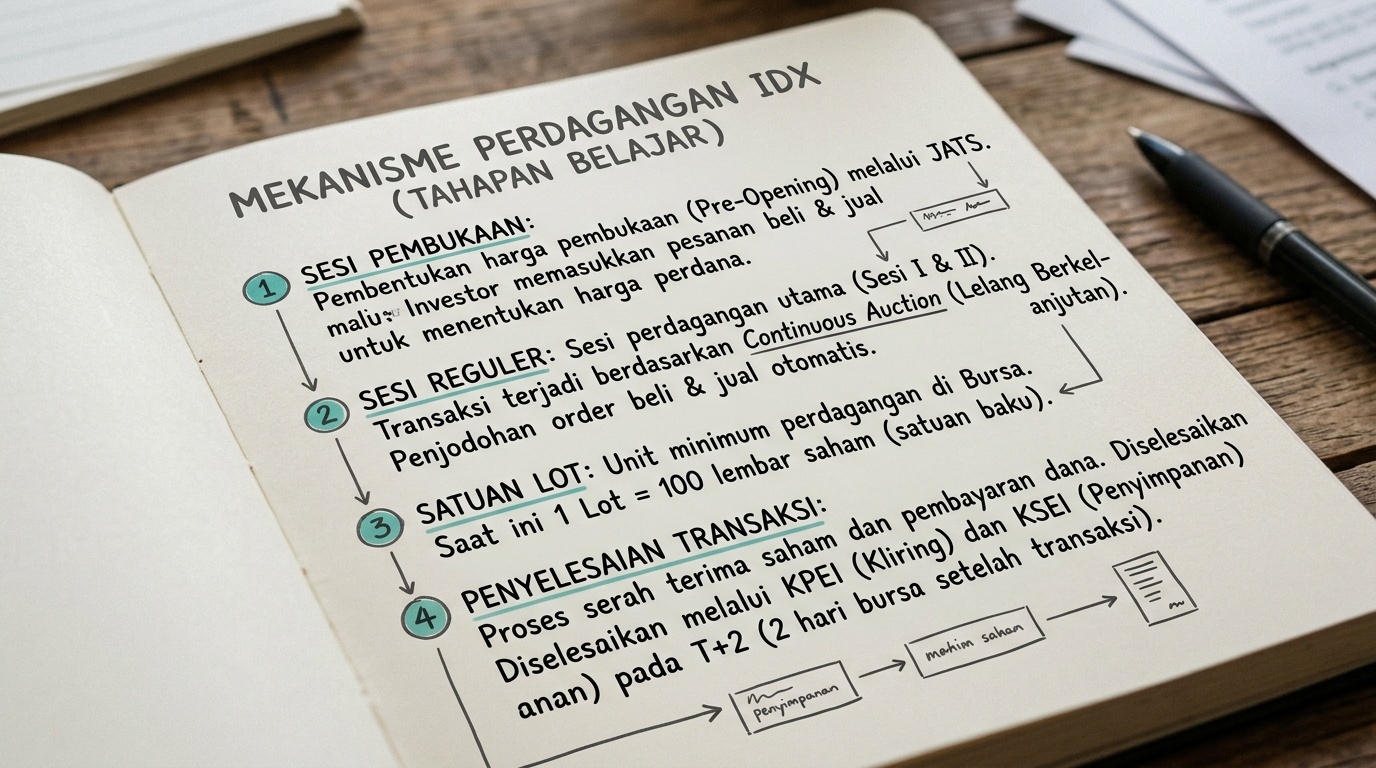 MEKANISME PERDAGANGAN IDX
(TAHAPAN BELAJAR)
1 SESI PEMBUKAAN:
Pembentukan harga pembukaan (Pre-Opening) melalui JATS.
Investor memasukkan pesanan beli & jual
untuk menentukan harga perdana.
2 SESI REGULER: Sesi perdagangan utama (Sesi I & II).
Transaksi terjadi berdasarkan Continuous Auction (Lelang Berkel-
anjutan).
Penjodohan order beli & jual otomatis.
3 SATUAN LOT: Unit minimum perdagangan di Bursa.
Saat ini 1 Lot = 100 lembar saham (satuan baku).
4 PENYELESAIAN TRANSAKSI:
Proses serah terima saham dan pembayaran dana. Diselesaikan
Diselesaikan melalui KPEI (Kliring) dan KSEI (Penyimpanan)
anan) pada T+2 (2 hari bursa setelah transaksi).
penyimpanan